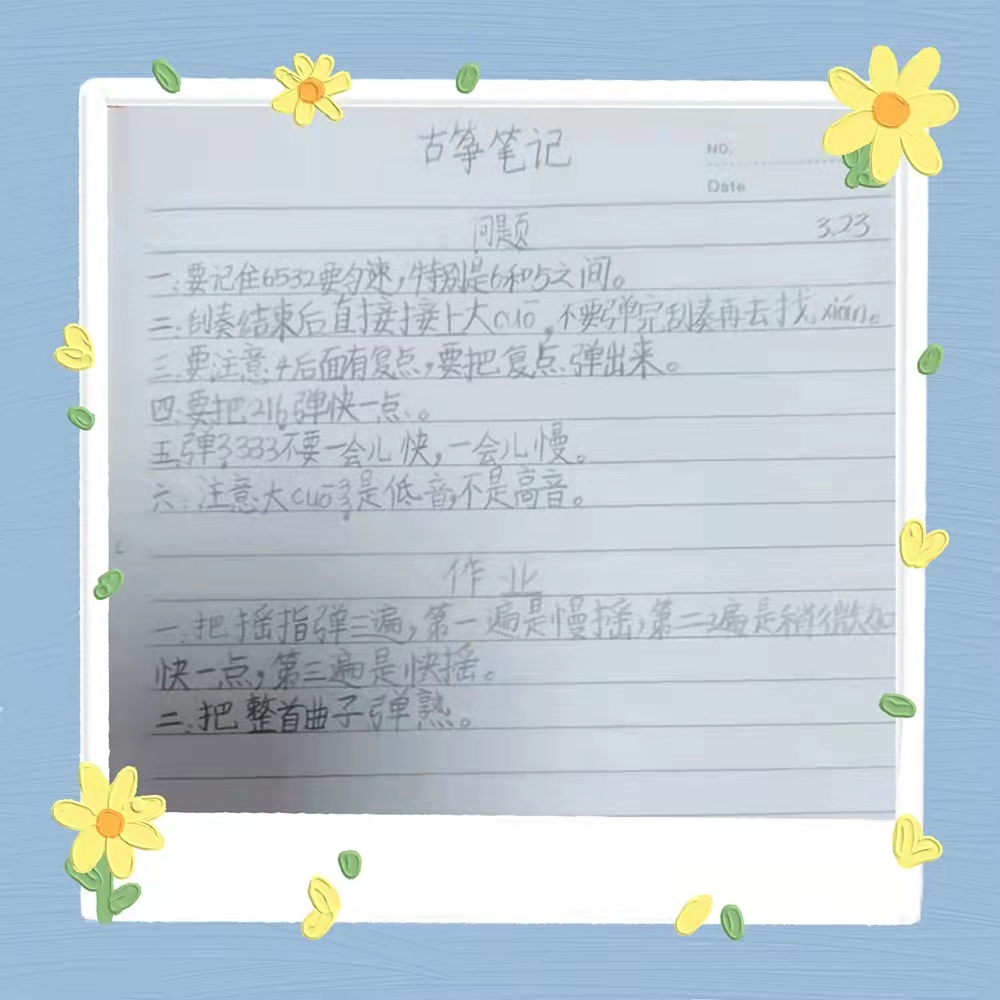 古筝笔记
NO.
Date
问题 3.23
一.要记住6532要匀速,特别是6和5之间。
二.刮奏结束后直接接上大cuō,不要弹完刮奏再去找xián。
三.要注意4后面有复点,要把复点弹出来。
四.要把216弹快一点。
五.弹3333不要一会儿快,一会儿慢。
六.注意大cuō是低音,不是高音。
作业
一.把摇指弹三遍,第一遍是慢摇,第二遍是稍微加
快一点,第三遍是快摇。
二.把整首曲子弹熟。